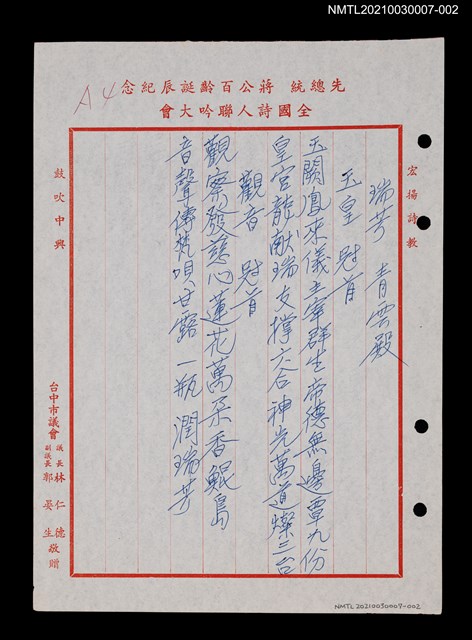 NMTL20210030007-002
A4
先總統 蔣公百齡誕辰紀念
全國詩人聯吟大會
宏揚詩教
瑞芳 青雲殿
玉皇 冠首
玉闕鳳來儀主宰群生帝德無邊覃九份
皇宮龍献瑞支撐六合神光萬道燦三台
觀音 冠首
觀察發慈心蓮花萬朵香鯤島
音聲傳梵唄甘露一瓶潤瑞芳
鼓吹中興
台中市議會 議長 林仁德
副議長 郭晏生 敬贈
NMTL20210030007-002